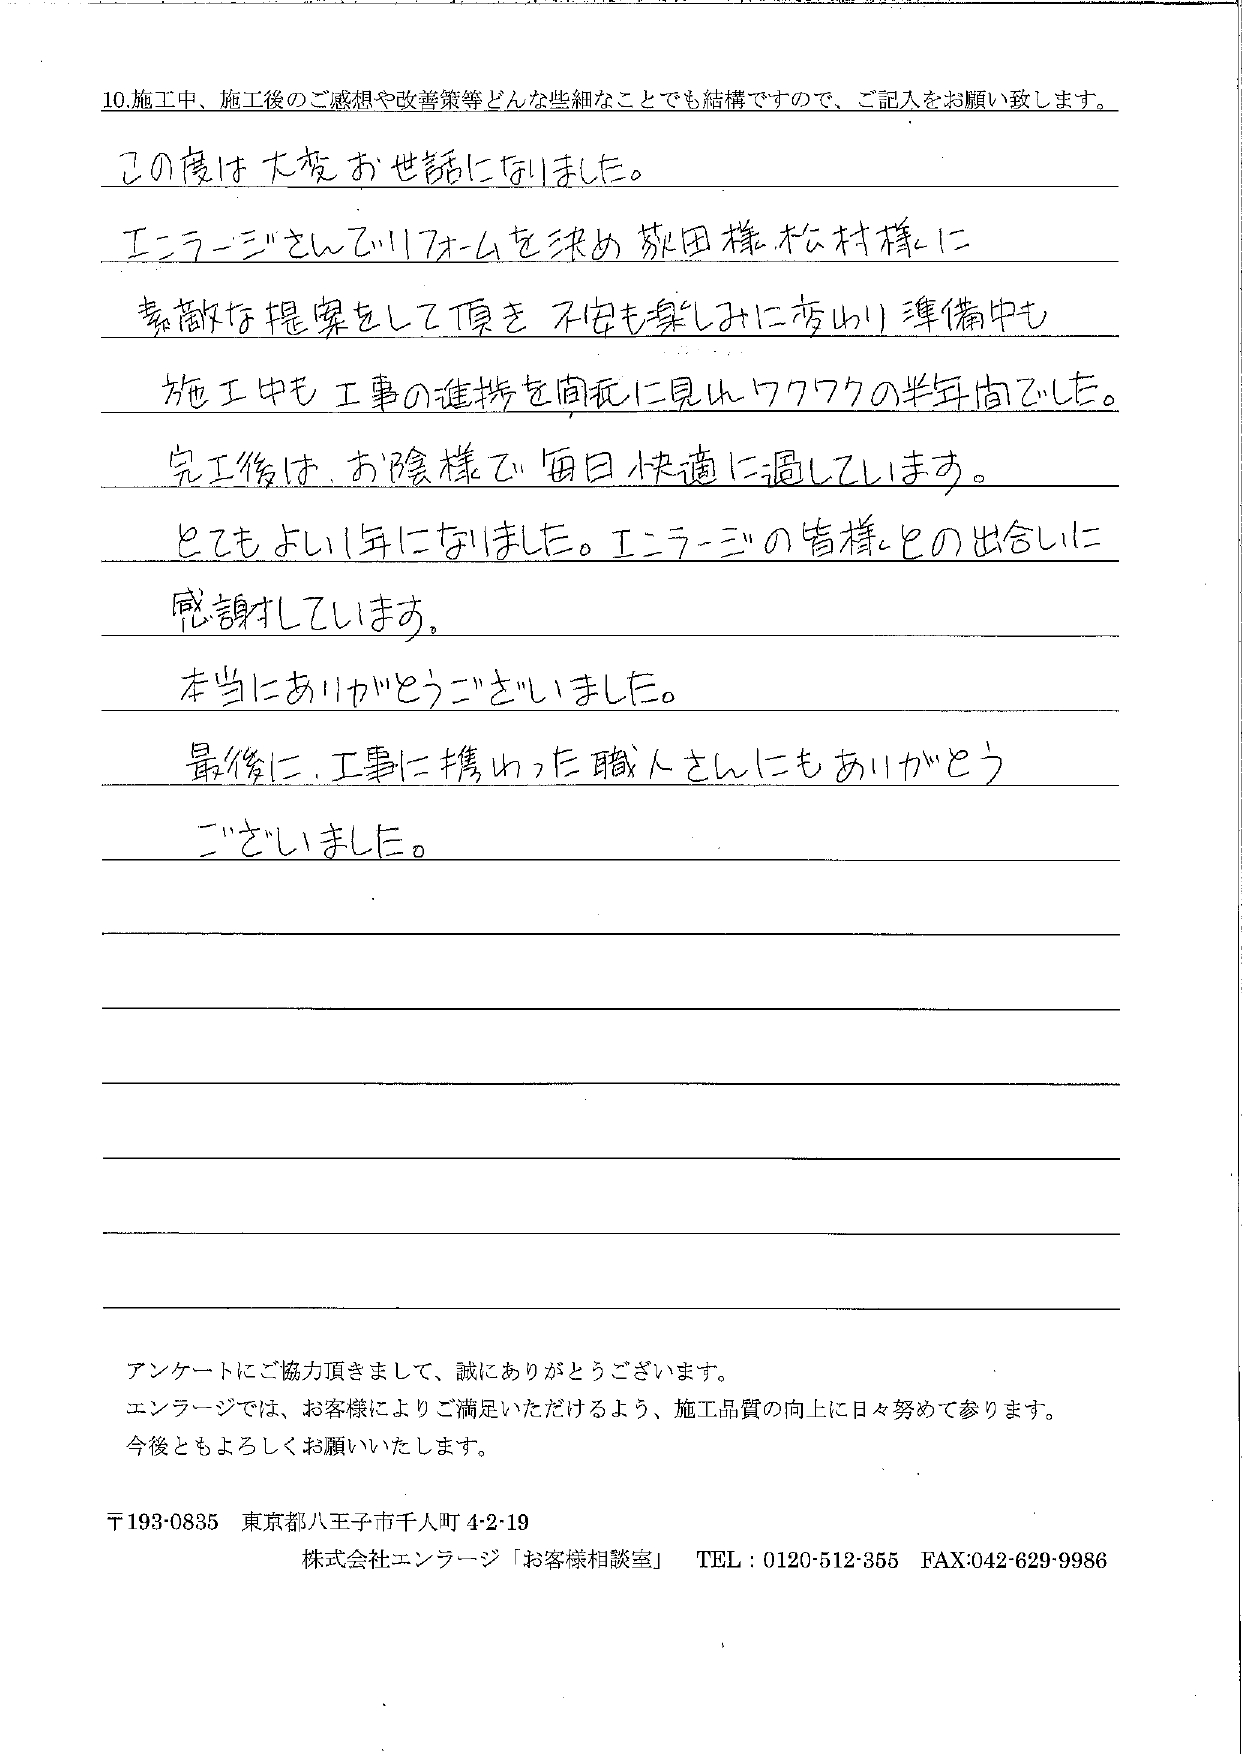 10.施工中、施工後のご感想や改善策等どんな些細なことでも結構ですので、ご記入をお願い致します。
この度は 大変 お世話になりました。
エンラージさんでリフォームを決め 荻田様、松村様に
素敵な提案をして頂き 不安も楽しみに変わり 準備中も
施工中も 工事の進捗を間近に見れ ワクワクの半年間でした。
完工後は、お陰様で 毎日 快適に過しています。
とてもよい1年になりました。エンラージの皆様との出合いに
感謝しています。
本当にありがとうございました。
最後に、工事に携わった職人さんにもありがとう
ございました。
アンケートにご協力頂きまして、誠にありがとうございます。
エンラージでは、お客様によりご満足いただけるよう、施工品質の向上に日々努めて参ります。
今後ともよろしくお願いいたします。
〒193-0835 東京都八王子市千人町 4-2-19
株式会社エンラージ「お客様相談室」 TEL：0120-512-355 FAX:042-629-9986